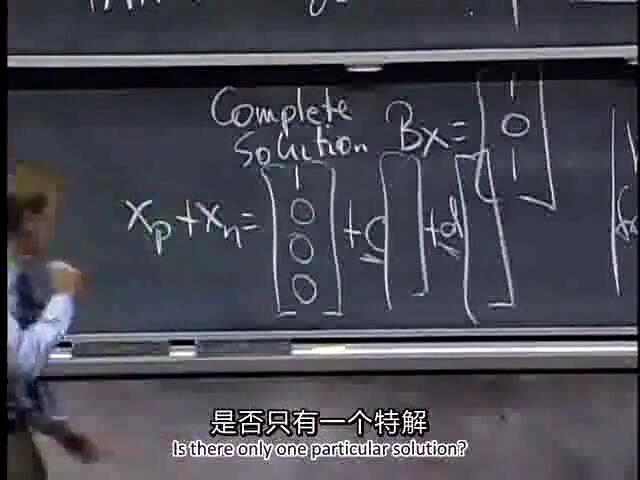 Complete
Solution Bx = [1 0 1]
x_p + x_n = [1 0 0 0] + c [ ] + d [ ]
是否只有一个特解
Is there only one particular solution?